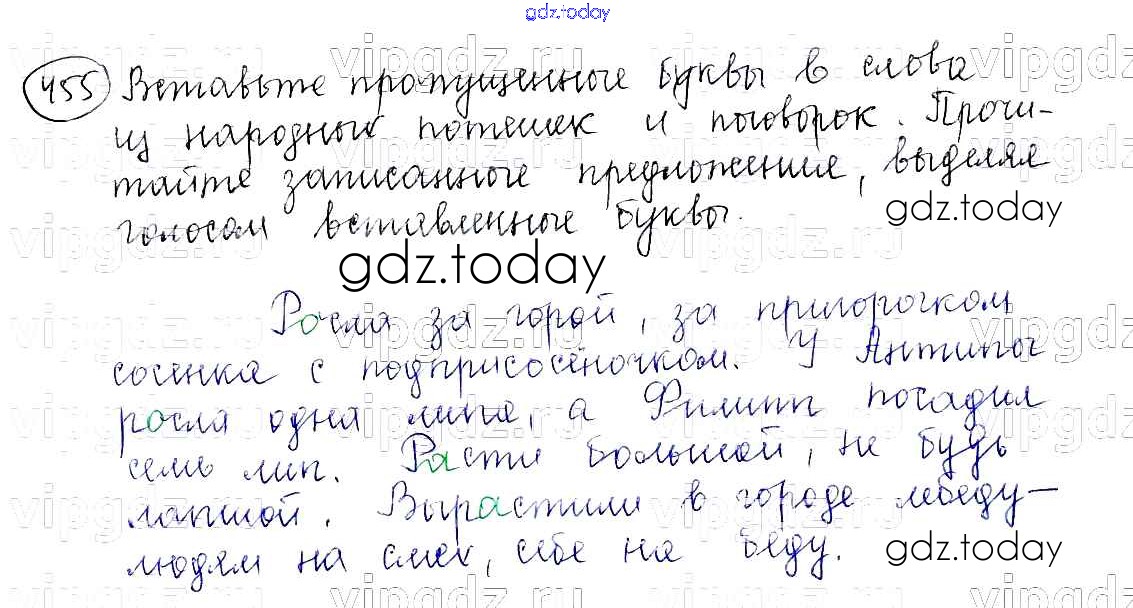 gdz.today
455 Вставьте пропущенные буквы в слова
из народных потешек и поговорок. Прочи-
тайте записанные предложения, выделяя
голосом вставленные буквы.
gdz.today
gdz.today
Росла за горой, за пригорочком
сосенка с подприсосёночком. У Антипы
росла одна липа, а Филипп посадил
семь лип. Расти большой, не будь
лапшой. Вырастили в городе лебеду—
людям на смех, себе на беду.
gdz.today
vipgdz.ru